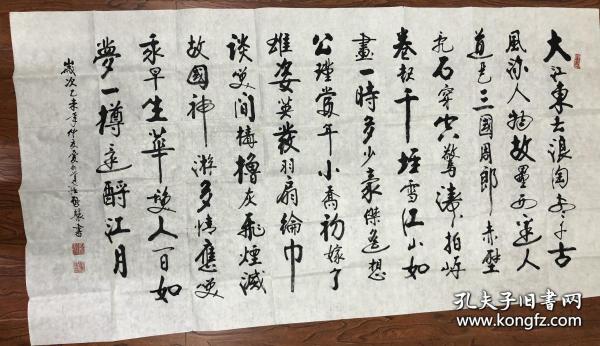 大江東去浪淘盡千古
風流人物故壘西邊人
道是三國周郎赤壁
乱石穿空驚濤拍岸
卷起千堆雪江山如
畫一時多少豪傑遙想
公瑾當年小喬初嫁了
雄姿英發羽扇綸巾
談笑間檣櫓灰飛煙滅
故國神游多情應笑
我早生華髮人間如
夢一樽還酹江月
歲次乙未年仲夏書
孔夫子旧书网
www.kongfz.com